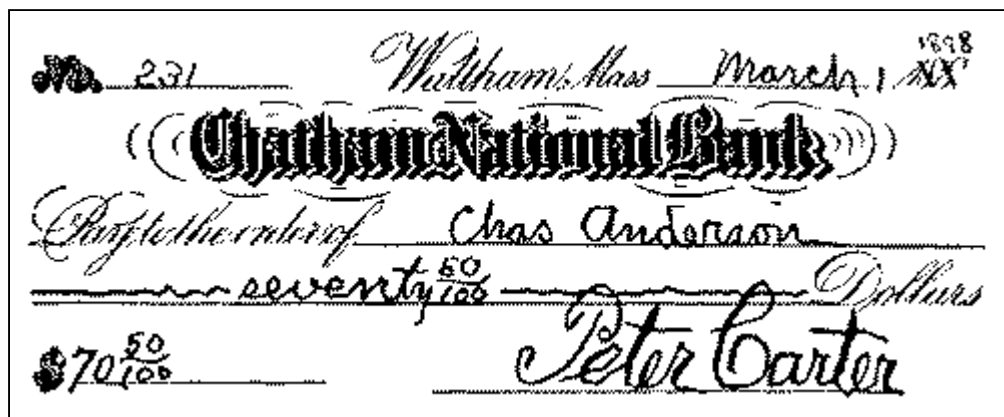 No. 231 Waltham, Mass March 1, 1898 XX
Chatham National Bank
Pay to the order of Chas Anderson
seventy 50/100 Dollars
$70 50/100 Peter Carter